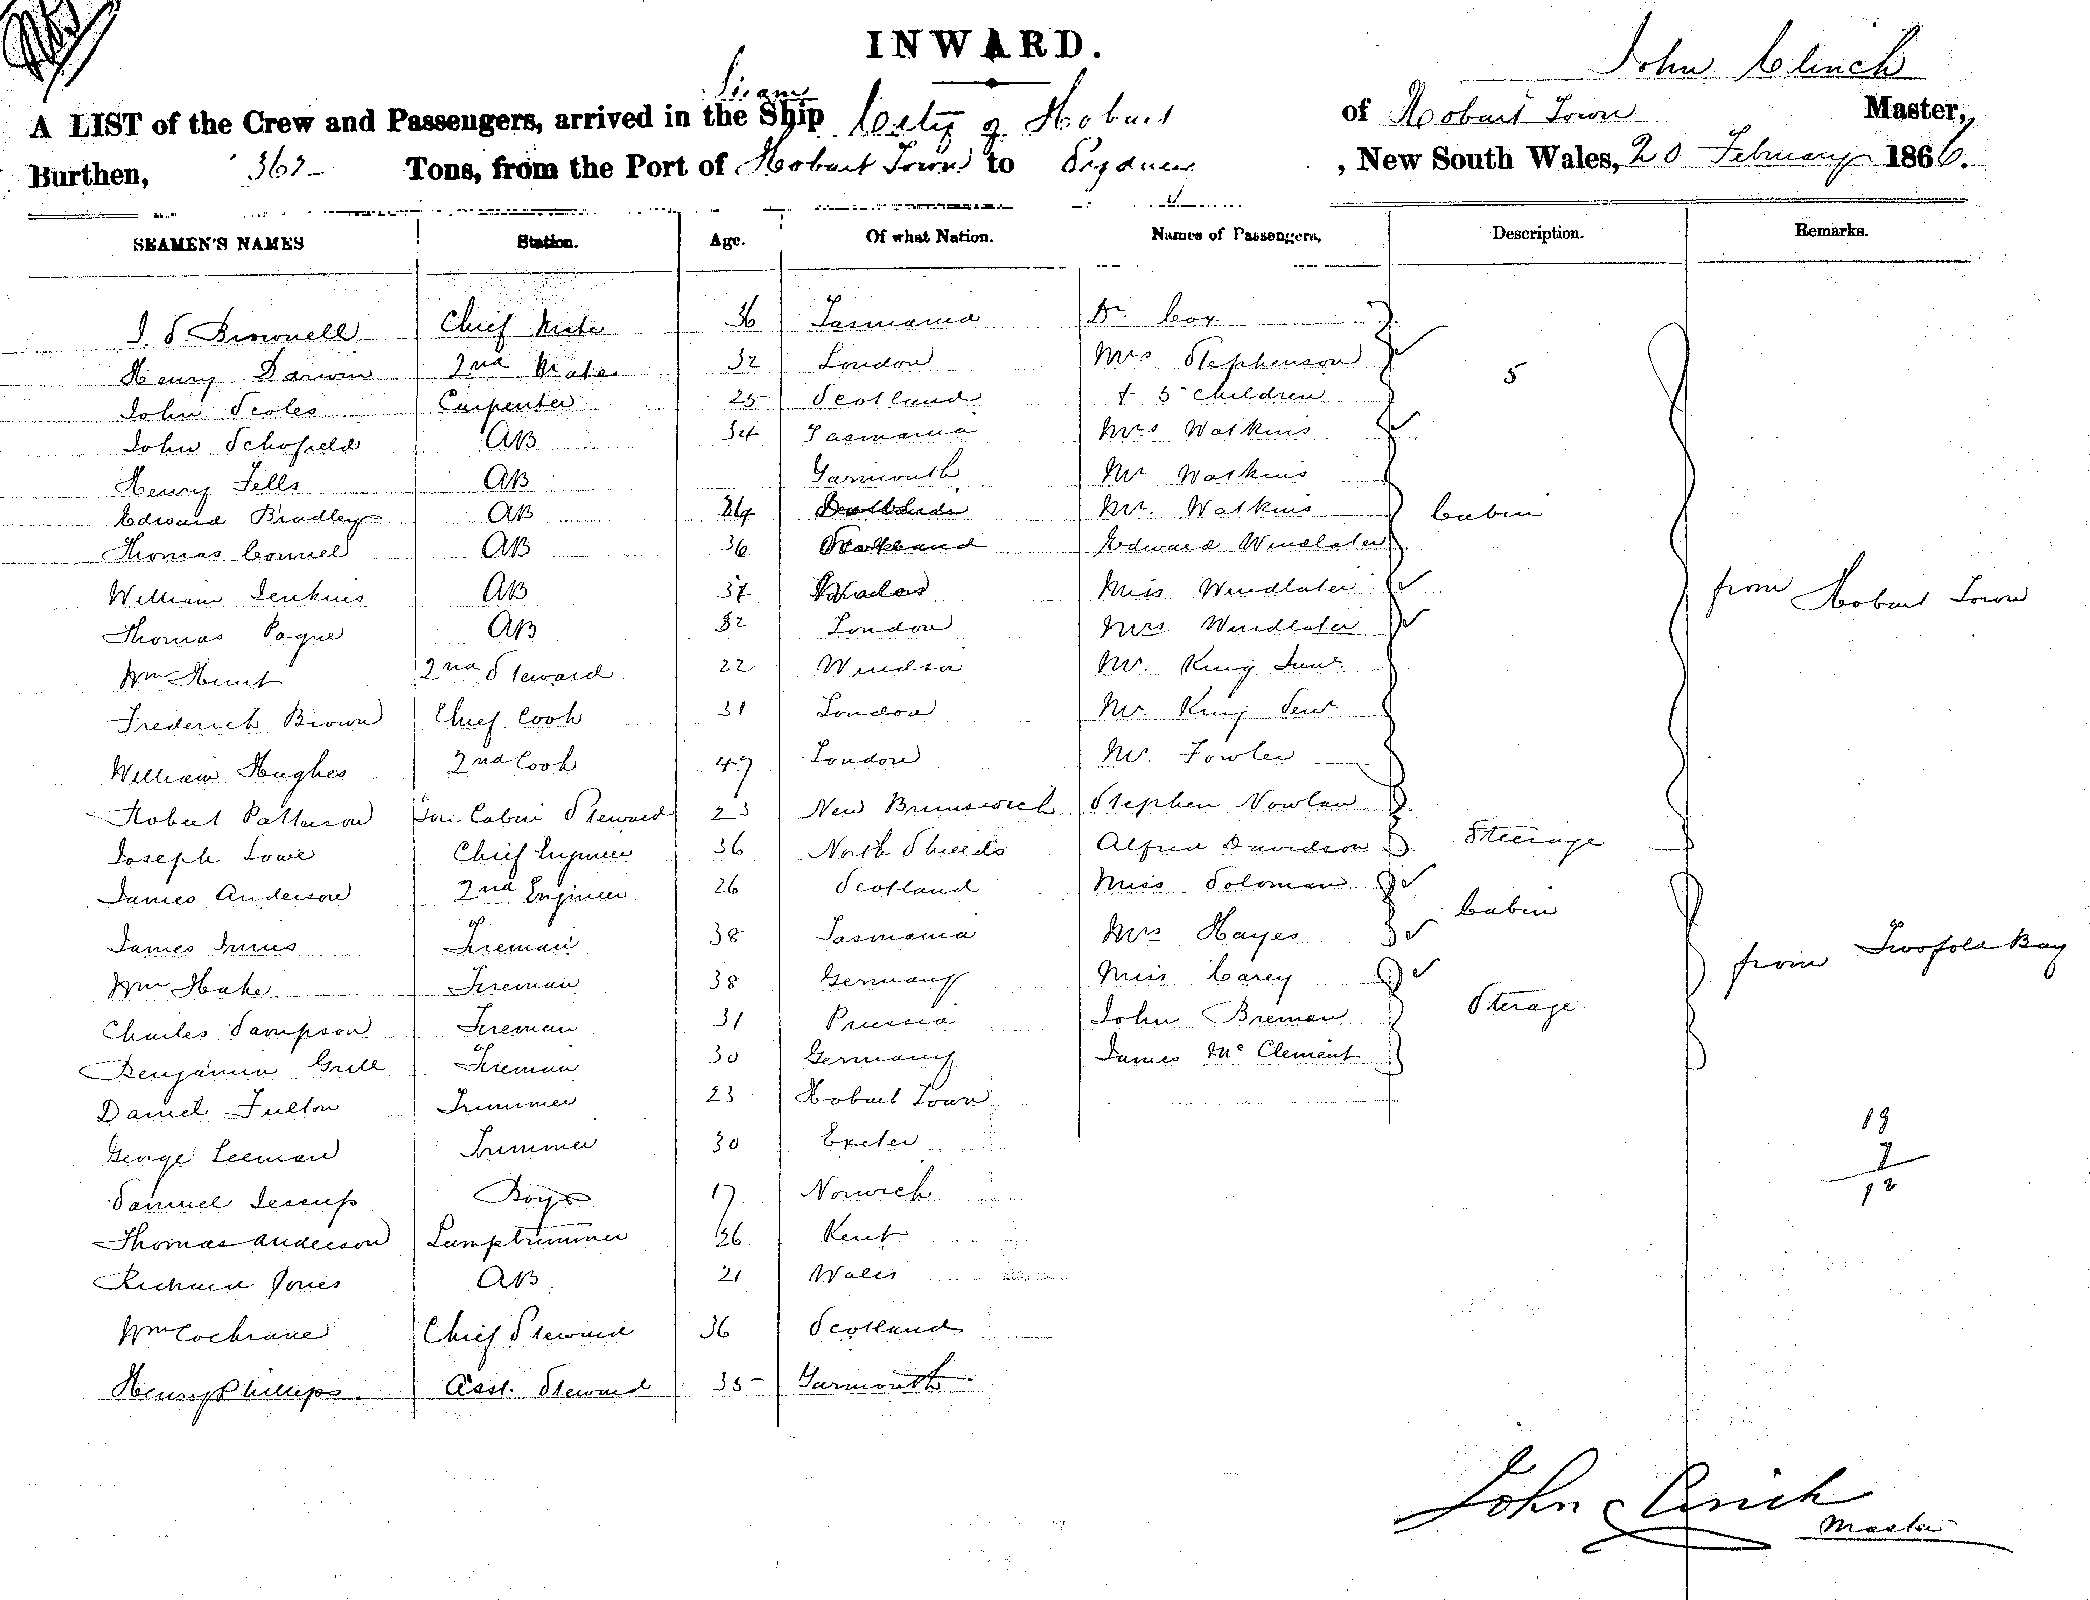 INWARD.
John Clinch
A LIST of the Crew and Passengers, arrived in the Steam Ship City of Hobart of Hobart Town Master,
Burthen, 363 Tons, from the Port of Hobart Town to Sydney, New South Wales, 20 February 1866.
SEAMEN'S NAMES Station. Age. Of what Nation. Names of Passengers, Description. Remarks.
Brownell Chief Mate 36 Tasmania Dr Cox
Henry Darwin 2nd Mate 32 London Mrs Stephenson 5
John Scoles Carpenter 25 Scotland + 5 children
John Schofield AB 34 Tasmania Mrs Watkins
Henry Fells AB Yarmouth Mr Watkins
Edward Bradley AB Mr. Watkins Cabin
Thomas Connel AB 36 Edward Windlater
William Jenkins AB 37 Miss Windlater from Hobart Town
Thomas Pogue AB 32 London Mrs Windlater
Wm Hunt 2nd Steward 22 Windsor Mr. King Junr
Frederick Brown Chief Cook 31 London Mr King Senr
William Hughes 2nd Cook 47 London Mr. Fowler
Robert Patterson Cabin Steward 23 New Brunswick Stephen Nowlan
Joseph Lowe Chief Engineer 36 North Shields Alfred Davidson Steerage
James Anderson 2nd Engineer 26 Scotland Miss Soloman Cabin
James Innus Fireman 38 Tasmania Mrs Hayes
Wm Hake Fireman 38 Germany Miss Carey from Twofold Bay
Charles Sampson Fireman 31 Prussia John Breman Sterage
Benjamin Grill Fireman 30 Germany James Mc Clement
Daniel Fulton Trimmer 23 Hobart Town
George Leeman Trimmer 30 Exeter
Samuel Jessup Boy 17 Norwich
Thomas Anderson Lamptrimmer 36 Kent
Richard Jones AB 21 Wales
Wm Cochrane Chief Steward 36 Scotland
Henry Phillips Asst. Steward 35 Yarmouth
John Clinch
Master